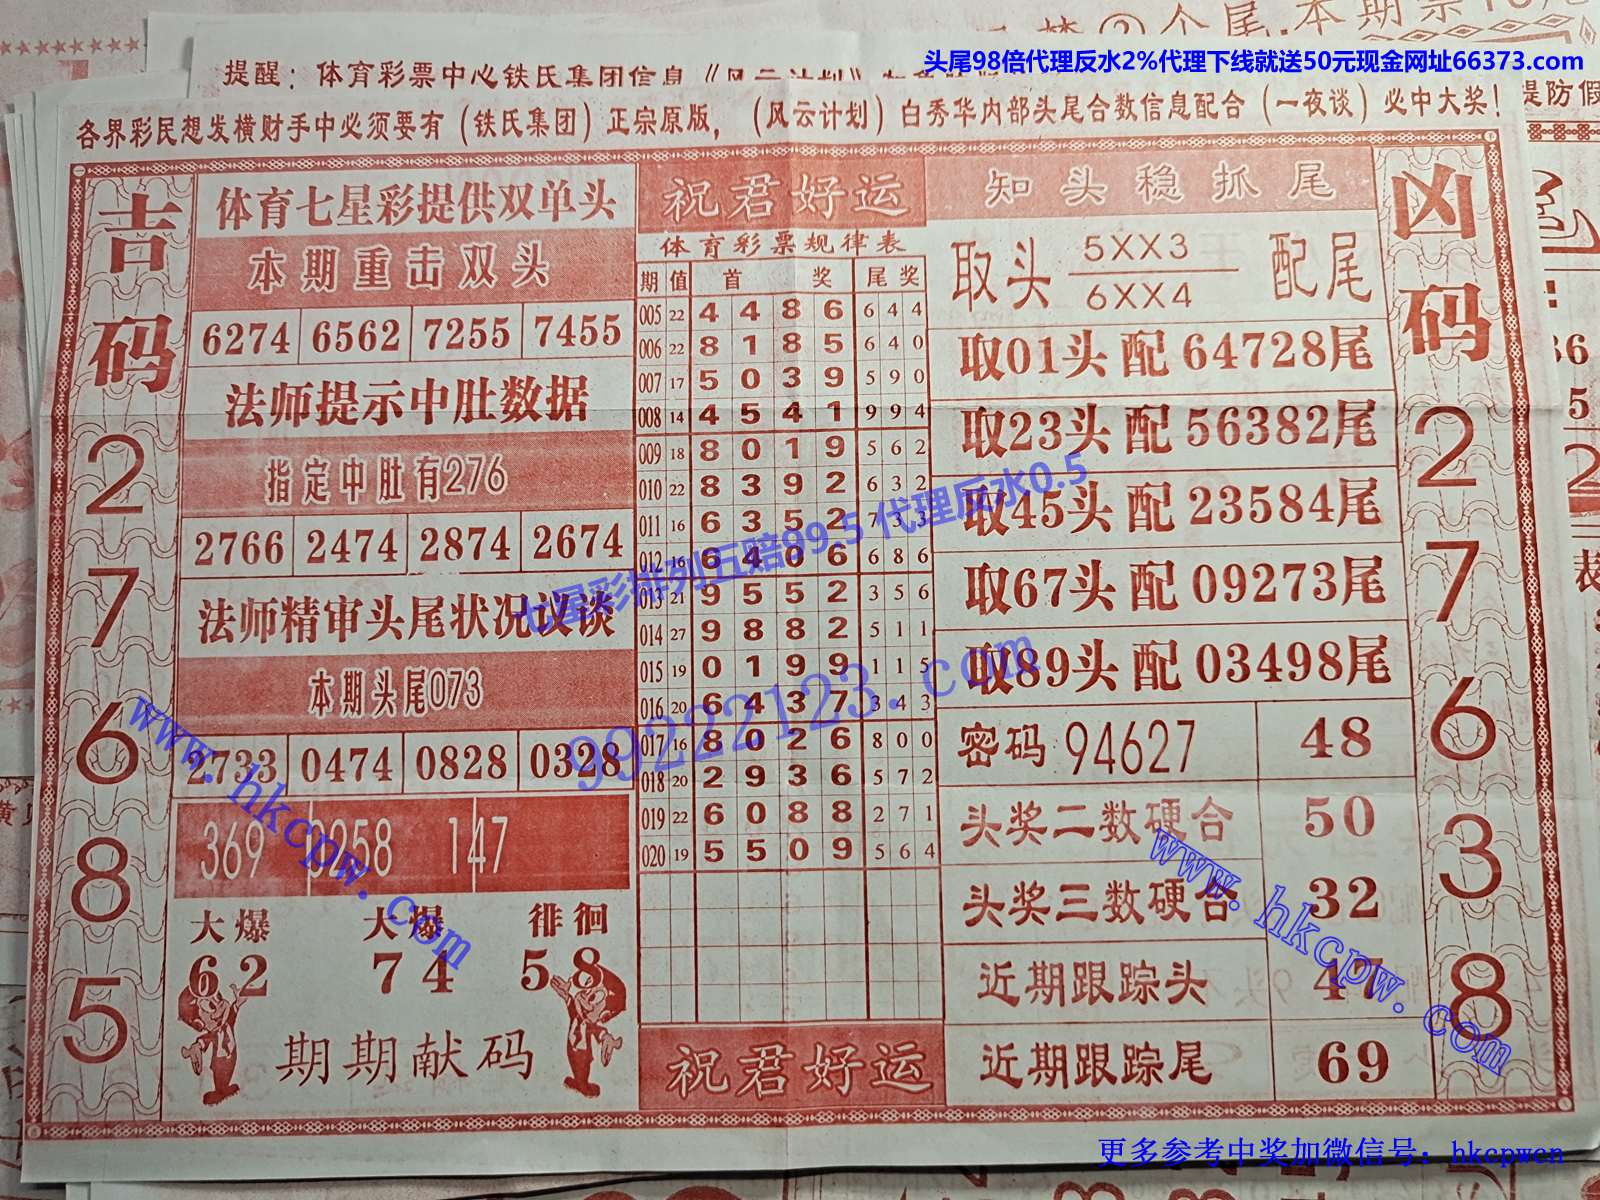 头尾98倍代理反水2%代理下线就送50元现金网址66373.com
提醒：体育彩票中心铁氏集团信息《风云计划》
各界彩民想发横财手中必须要有（铁氏集团）正宗原版，（风云计划）白秀华内部头尾合数信息配合（一夜谈）必中大奖！
提防假
吉码
2
7
6
8
5
体育七星彩提供双单头
本期重击双头
6274 6562 7255 7455
法师提示中肚数据
指定中肚有276
2766 2474 2874 2674
法师精审头尾状况议谈
本期头尾073
2733 0474 0828 0328
369 3258 147
大爆 大爆 徘徊
62 74 58
期期献码
祝君好运
体育彩票规律表
期 值 首 奖 尾 奖
005 22 4 4 8 6 6 4 4
006 22 8 1 8 5 6 4 0
007 17 5 0 3 9 5 9 0
008 14 4 5 4 1 9 9 4
009 18 8 0 1 9 5 6 2
010 22 8 3 9 2 6 3 2
011 16 6 3 5 2 7 3 3
012 16 6 4 0 6 6 8 6
013 21 9 5 5 2 3 5 6
014 27 9 8 8 2 5 1 1
015 19 0 1 9 9 1 1 5
016 20 6 4 3 7 3 4 3
017 16 8 0 2 6 8 0 0
018 20 2 9 3 6 5 7 2
019 22 6 0 8 8 2 7 1
020 19 5 5 0 9 5 6 4
祝君好运
知头稳抓尾
取头 5XX3 配尾
6XX4
取01头 配 64728尾
取23头 配 56382尾
取45头 配 23584尾
取67头 配 09273尾
取89头 配 03498尾
密码 94627 48
头奖二数硬合 50
头奖三数硬合 32
近期跟踪头 47
近期跟踪尾 69
凶码
2
7
6
3
8
七星彩排列五赔99.5 代理反水0.5
99222123.com
www.hkcpw.com
www.hkcpw.com
更多参考中奖加微信号：hkcpwcn